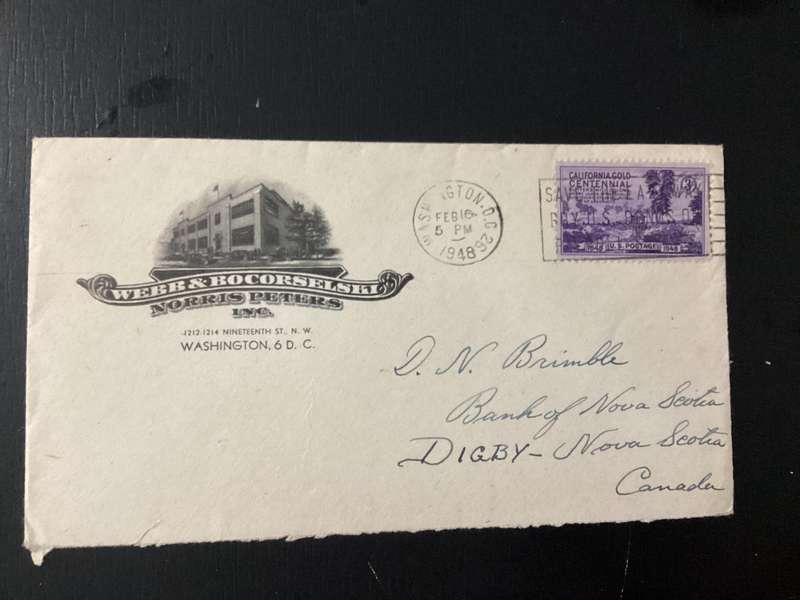 WEBB & BOCORSELSKI
NORRIS PETERS
INC.
1212-1214 NINETEENTH ST., N. W.
WASHINGTON, 6 D. C.
WASHINGTON, D.C.
FEB 16
5 PM
1948
CALIFORNIA GOLD
CENTENNIAL
3¢
1948 U.S. POSTAGE 1948
D. N. Brimble
Bank of Nova Scotia
DIGBY - Nova Scotia
Canada